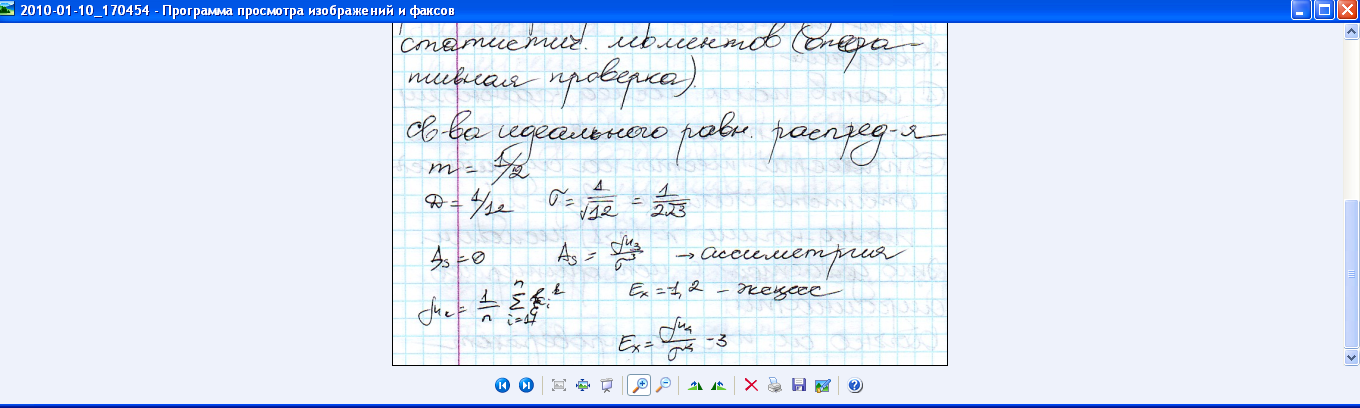 2010-01-10_170454 - Программа просмотра изображений и факсов
статистич. моментов (опера-
тивная проверка).
Св-ва идеального равн. распред-я
m = 1/2
D = 1/12 σ = 1/√12 = 1/2√3
As = 0 As = μ3/σ³ → ассиметрия
Ex = 1,2 - эксцесс
Ex = μ4/σ⁴ - 3